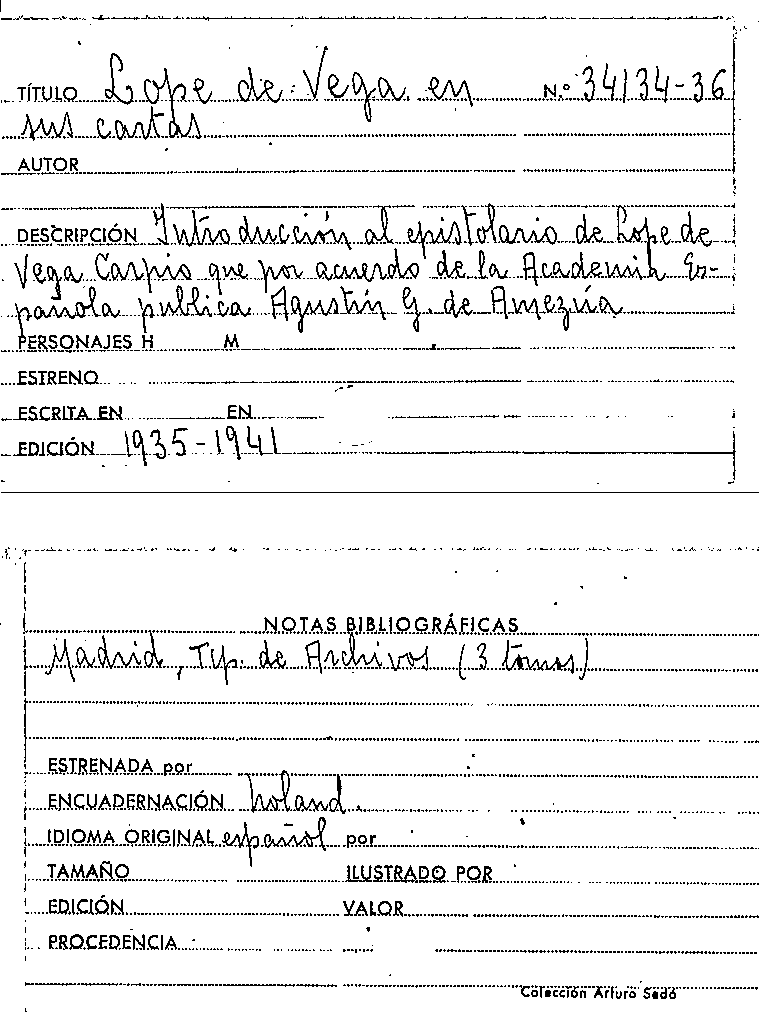 TÍTULO Lope de Vega en N.º 34134-36
sus cartas
AUTOR
DESCRIPCIÓN Introducción al epistolario de Lope de
Vega Carpio que por acuerdo de la Academia Es-
pañola publica Agustín G. de Amezúa
PERSONAJES H M
ESTRENO
ESCRITA EN EN
EDICIÓN 1935-1941
NOTAS BIBLIOGRÁFICAS
Madrid, Tip. de Archivos (3 tomos)
ESTRENADA por
ENCUADERNACIÓN holand.
IDIOMA ORIGINAL español por
TAMAÑO ILUSTRADO POR
EDICIÓN VALOR
PROCEDENCIA
Colección Arturo Sedó